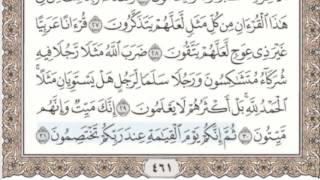 هَٰذَا ٱلۡقُرۡءَانِ مِن كُلِّ مَثَلٖ لَّعَلَّهُمۡ يَتَذَكَّرُونَ ٢٧ قُرۡءَانًا عَرَبِيًّا
غَيۡرَ ذِي عِوَجٖ لَّعَلَّهُمۡ يَتَّقُونَ ٢٨ ضَرَبَ ٱللَّهُ مَثَلٗا رَّجُلٗا فِيهِ
شُرَكَآءُ مُتَشَٰكِسُونَ وَرَجُلٗا سَلَمٗا لِّرَجُلٍ هَلۡ يَسۡتَوِيَانِ مَثَلًاۚ
ٱلۡحَمۡدُ لِلَّهِۚ بَلۡ أَكۡثَرُهُمۡ لَا يَعۡلَمُونَ ٢٩ إِنَّكَ مَيِّتٞ وَإِنَّهُم
مَّيِّتُونَ ٣٠ ثُمَّ إِنَّكُمۡ يَوۡمَ ٱلۡقِيَٰمَةِ عِندَ رَبِّكُمۡ تَخۡتَصِمُونَ ٣١
٤٦١